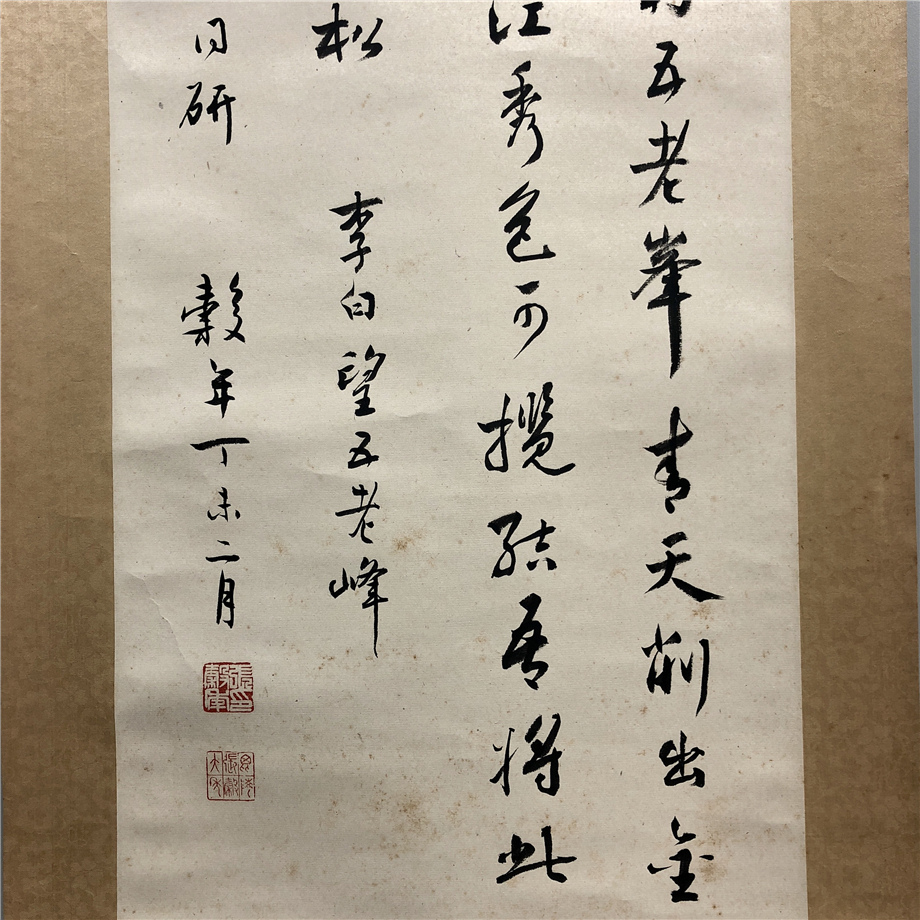 五老峯青天削出金
江秀色可攬結吾將此
松 李白望五老峰
同研 穀年丁未二月
張穀年印